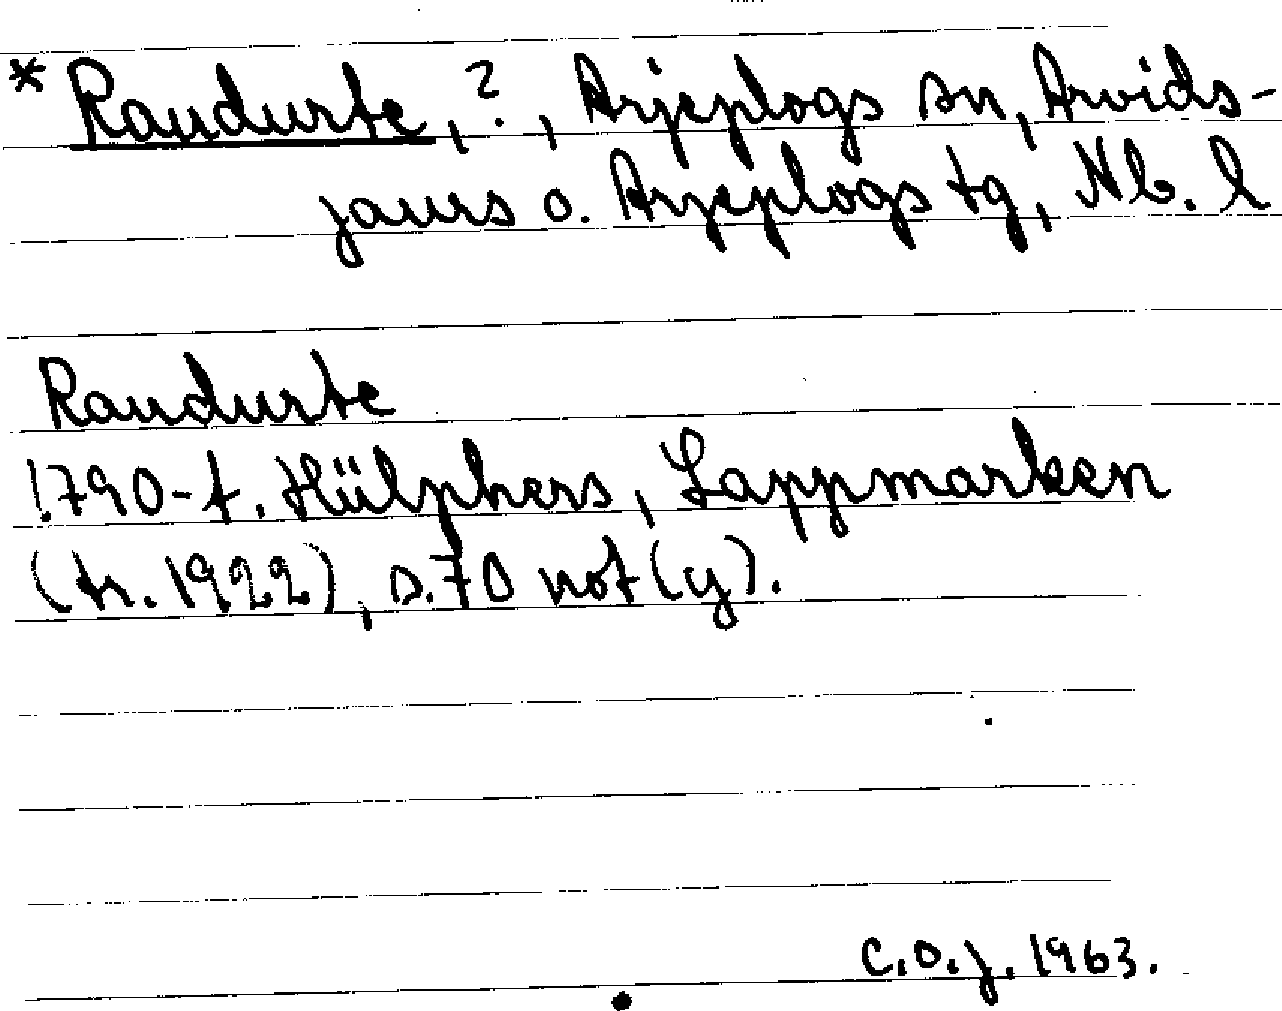 * Raudurte, ?, Arjeplogs sn, Arvids-
jaurs o. Arjeplogs tg, Nb. l
Raudurte
1790-t. Hülphers, Lappmarken
(tr. 1922), s. 70 not (y).
C.O.J. 1963.